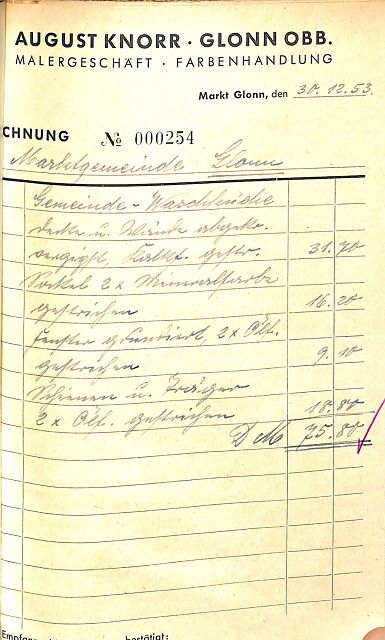 AUGUST KNORR · GLONN OBB.
MALERGESCHÄFT · FARBENHANDLUNG
Markt Glonn, den 30.12.53.
CHNUNG № 000254
Marktgemeinde Glonn
Gemeinde-Waschküche
Decke u. Wände abgekr.
vergipst, Kalkf. gestr. 31.70
Sockel 2x Mineralfarbe
gestrichen 16.20
Fenster grundiert, 2x Ölf.
gestrichen 9.10
Schienen u. Träger
2x Ölf. gestrichen 18.80
DM 75.80
Empfang bestätigt: